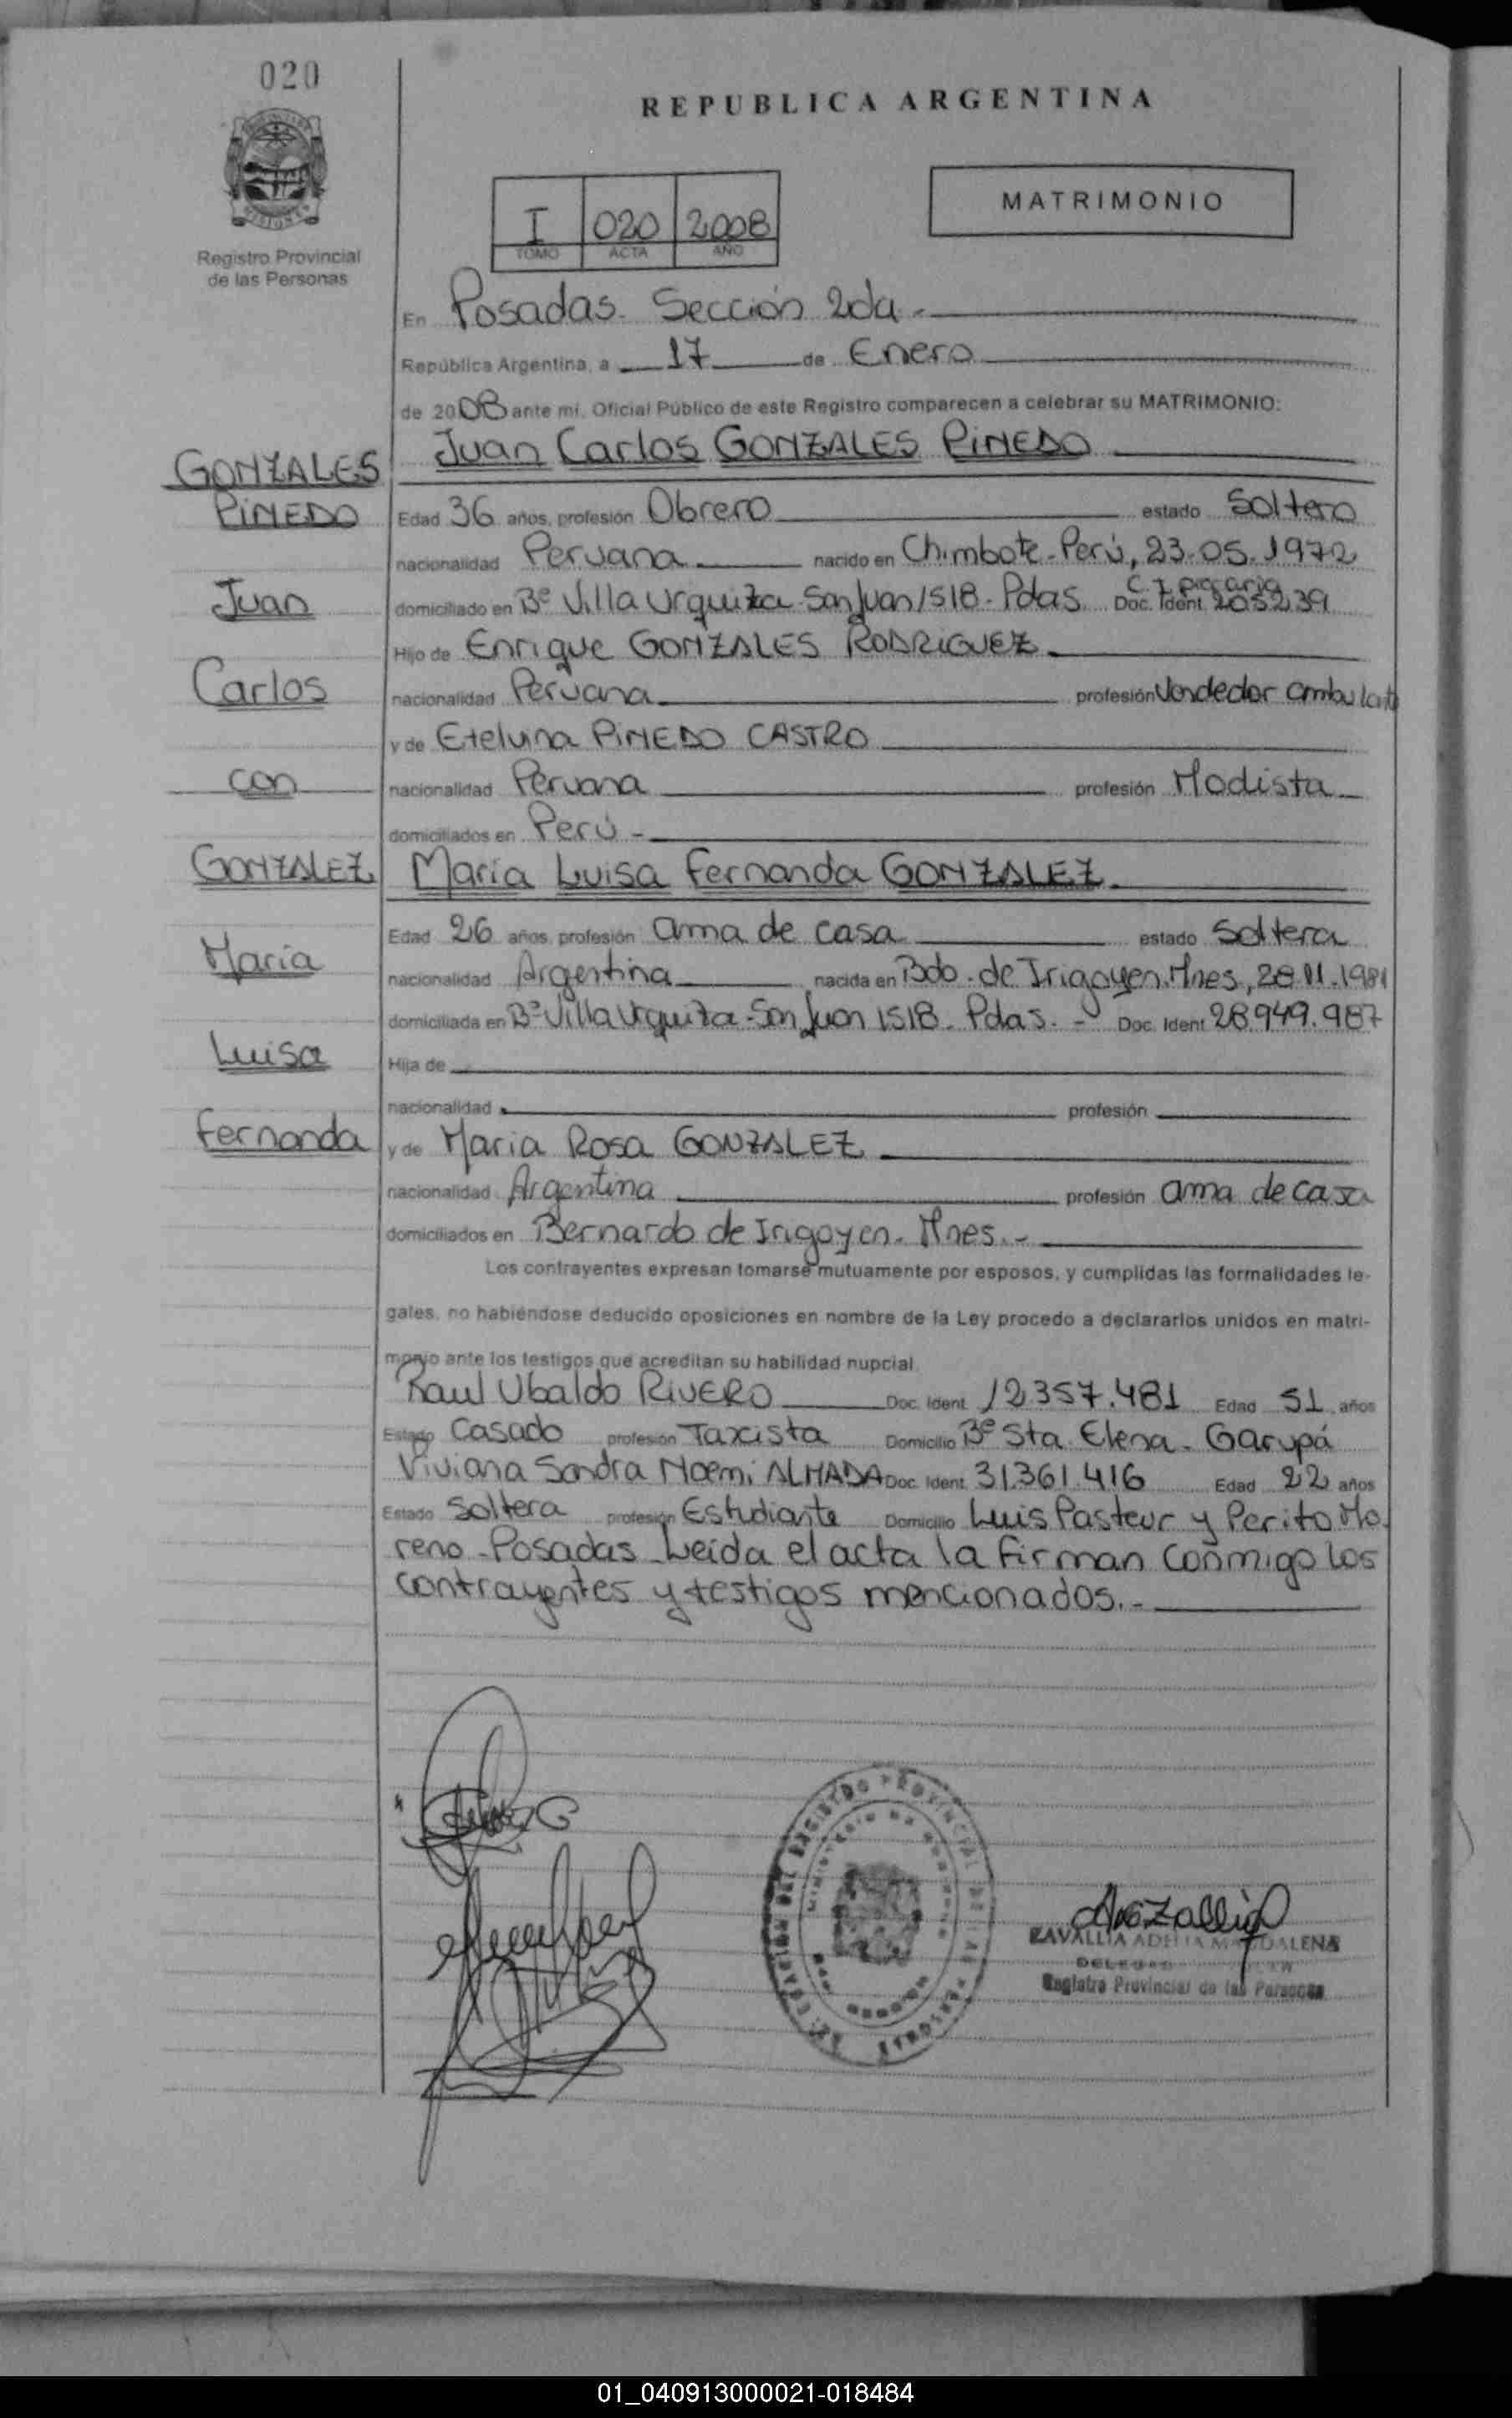 020
REPUBLICA ARGENTINA
MATRIMONIO
I 020 2008
TOMO ACTA AÑO
Registro Provincial
de las Personas
En Posadas. Sección 2da.-
República Argentina, a 17 de Enero
de 2008 ante mí, Oficial Público de este Registro comparecen a celebrar su MATRIMONIO:
Juan Carlos GONZALES PINEDO
GONZALES
PINEDO
Juan
Carlos
con
GONZALEZ
María
Luisa
Fernanda
Edad 36 años, profesión Obrero estado Soltero
nacionalidad Peruana nacido en Chimbote-Perú, 23.05.1972
C.I. precaria
domiciliado en Bº Villa Urquiza-San Juan 1518-Pdas Doc. Ident. 2052239
Hijo de Enrique GONZALES RODRIGUEZ
nacionalidad Peruana profesión Vendedor ambulante
y de Etelvina PINEDO CASTRO
nacionalidad Peruana profesión Modista
domiciliados en Perú-
María Luisa Fernanda GONZALEZ
Edad 26 años, profesión ama de casa estado Soltera
nacionalidad Argentina nacida en Bdo. de Irigoyen.Mnes, 28.11.1981
domiciliada en Bº Villa Urquiza-San Juan 1518-Pdas.- Doc. Ident 28.949.987
Hija de
nacionalidad profesión
y de María Rosa GONZALEZ
nacionalidad Argentina profesión ama de casa
domiciliados en Bernardo de Irigoyen. Mnes.-
Los contrayentes expresan tomarse mutuamente por esposos, y cumplidas las formalidades le-
gales, no habiéndose deducido oposiciones en nombre de la Ley procedo a declararlos unidos en matri-
monio ante los testigos que acreditan su habilidad nupcial
Raul Ubaldo RIVERO Doc. Ident. 12.357.481 Edad 51 años
Estado Casado profesión Taxista Domicilio Bº Sta Elena-Garupá
Viviana Sandra Noemi ALMADA Doc. Ident. 31.361.416 Edad 22 años
Estado Soltera profesión Estudiante Domicilio Luis Pasteur y Perito Mo
reno-Posadas. Leída el acta la firman conmigo los
contrayentes y testigos mencionados.-
ZAVALLIA ADELIA MAGDALENA
Registro Provincial de las Personas
01_040913000021-018484